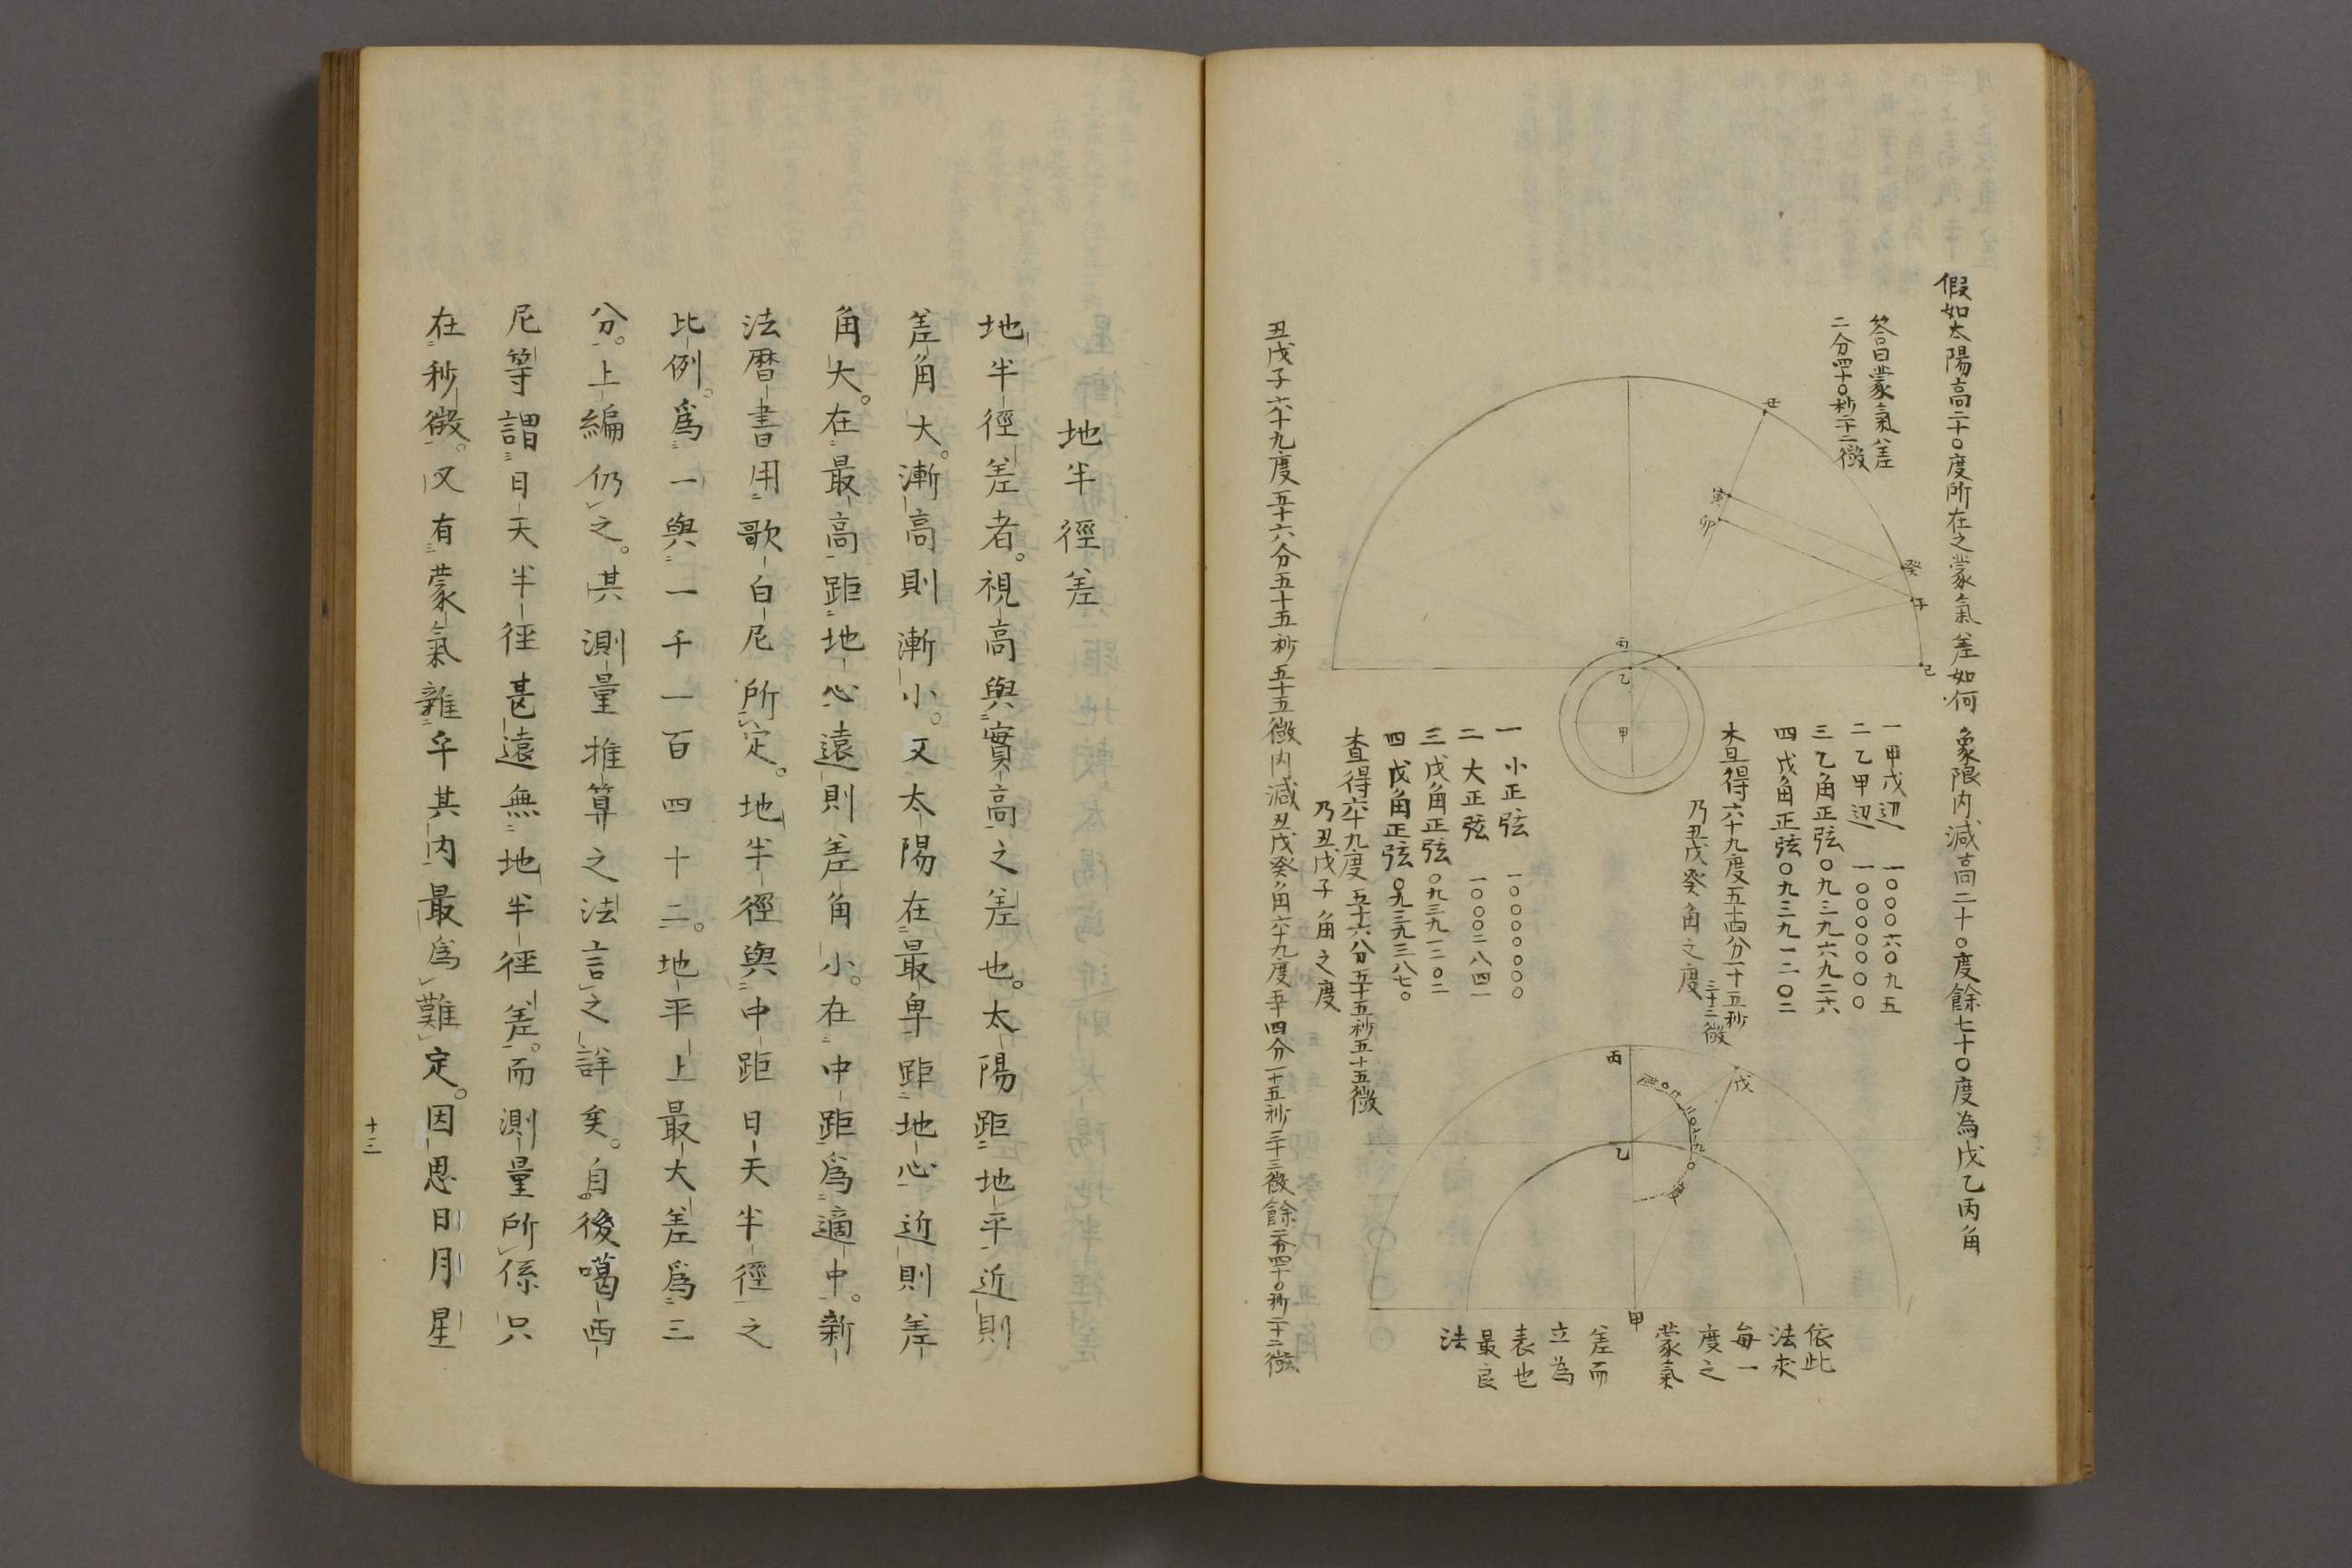 假如太陽高二十〇度所在之蒙氣差如何
象限内減高二十〇度餘七十〇度為戊乙丙角
答曰蒙氣差
二分四十〇秒二十二微
丑
寅
卯
癸
子
己
丙
乙
甲
一 甲戊辺 一〇〇〇六〇九五
二 乙甲辺 一〇〇〇〇〇〇〇
三 乙角正弦 〇九三九六九二六
四 戊角正弦 〇九三九一二〇二
査得六十九度五十四分一十五秒
三十三微
乃丑戊癸角之度
一 小正弦 一〇〇〇〇〇〇〇
二 大正弦 一〇〇〇二八四一
三 戊角正弦 〇九三九一二〇二
四 戊角正弦 〇九三九三八七〇
査得六十九度五十六分五十五秒五十五微
乃丑戊子角之度
丙
戊
乙
甲
依此
法求
每一
度之
蒙氣
差而
立為
表也
最良
法
丑戊子六十九度五十六分五十五秒五十五微内減丑戊癸角六十九度五十四分一十五秒三十三微餘二分四十〇秒二十二微
地半徑差
地半徑差者。視高與實高之差也。太陽距地平近則
差角大。漸高則漸小。又太陽在最卑距地心近則差
角大。在最高距地心遠則差角小。在中距爲適中。新
法暦書用歌白尼所定。地半徑與中距日天半徑之
比例。爲一與一千一百四十二。地平上最大差爲三
分。上編仍之。其測量推算之法言之詳矣。自後噶西
尼等謂日天半徑甚遠無地半徑差。而測量所係只
在秒微。又有蒙氣雜乎其内最爲難定。因思日月星
十三